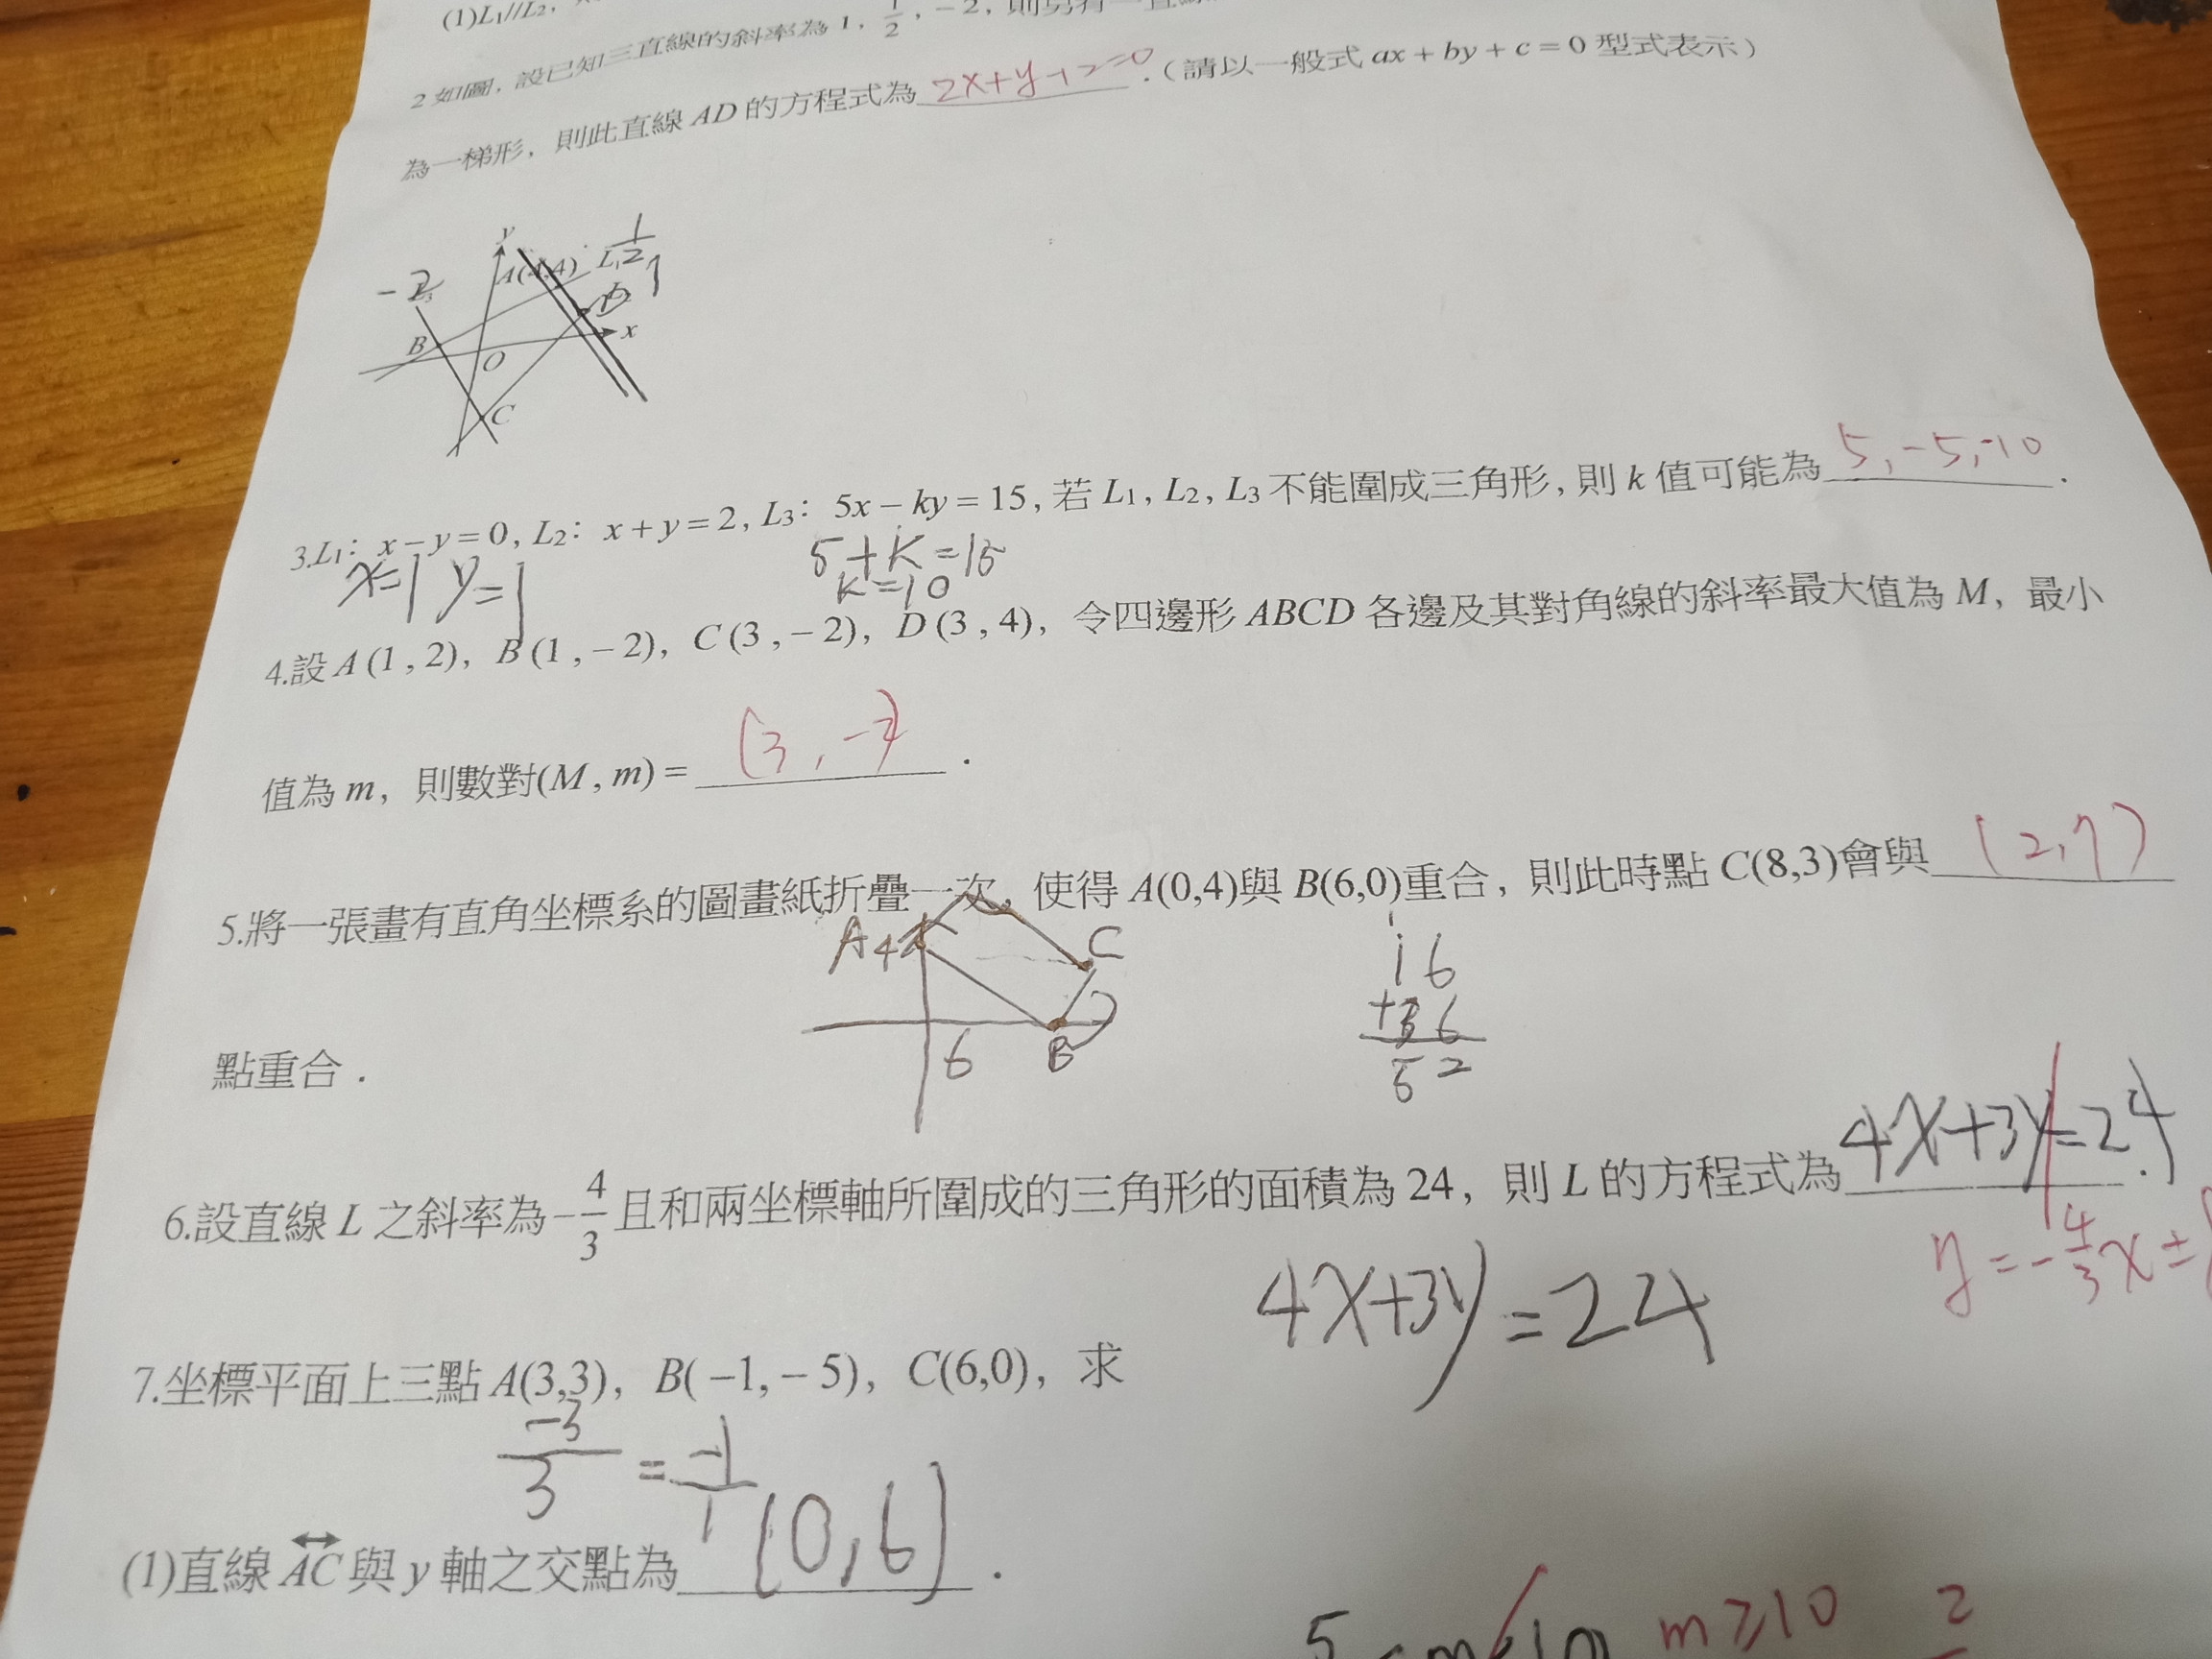 (1)L₁//L₂,
2 如圖, 設已知三直線的斜率為 1, 1/2, -2, 則另有一直線
為一梯形, 則此直線 AD 的方程式為 2x+y-12=0 .(請以一般式 ax + by + c = 0 型式表示)
y
A(4,4) L₁ 1/2
-2 L₃ D 1
B O x
C
3.L₁: x - y = 0, L₂: x + y = 2, L₃: 5x - ky = 15, 若 L₁, L₂, L₃ 不能圍成三角形, 則 k 值可能為 5,-5,-10 .
x=1 y=1 5+k=15
k=10
4.設 A (1 , 2), B (1 , - 2), C (3 , - 2), D (3 , 4), 令四邊形 ABCD 各邊及其對角線的斜率最大值為 M, 最小
值為 m, 則數對(M , m) = (3, -2) .
5.將一張畫有直角坐標系的圖畫紙折疊一次, 使得 A(0,4)與 B(6,0)重合, 則此時點 C(8,3)會與 (2,7)
A 4 C
6 B
16
+36
52
點重合 .
6.設直線 L 之斜率為 -4/3 且和兩坐標軸所圍成的三角形的面積為 24, 則 L 的方程式為 4x+3y=24 .
y=-4/3x±
4x+3y=24
7.坐標平面上三點 A(3,3), B( -1, - 5), C(6,0), 求
-3/3 = -1/1
(1)直線 AC 與 y 軸之交點為 (0,6) .
m≥10